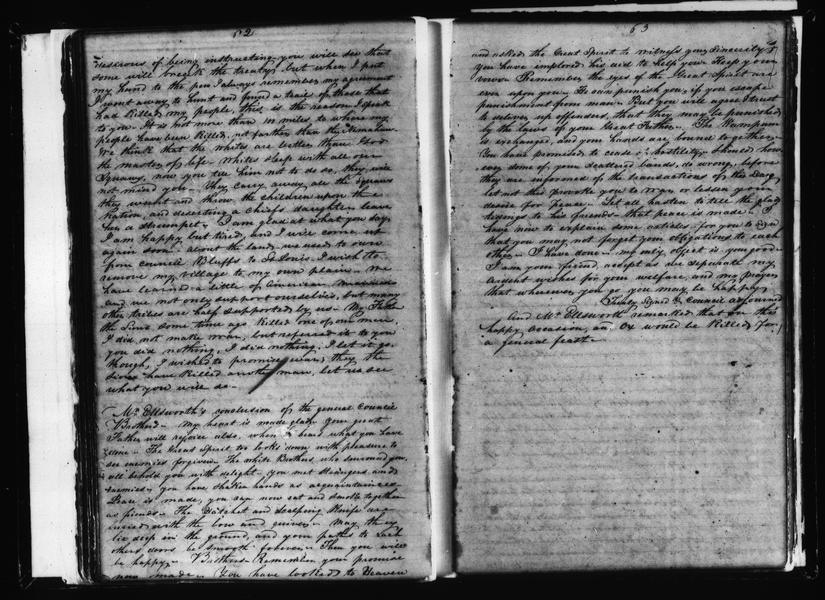 62
desirous of being instructing, you will see that
some will break the treaty, but when I put
my hand to the pen I always remember my agreement
I went away to hunt and found a trail of those that
had killed my people, this is the reason I speak
to you. It is not more than 10 miles to where my
people have been killed, not farther than the
We think that the whites are better than
the master of life. Whites sleep with all our
Squaws, now you tell him not to do so, they will
not mind you. They carry away all the squaws
they want and throw the children upon the
Nation, and deserting a Chiefs daughter leave
her a strumpet. I am glad at what you say,
I am happy but tired, and I will come
again soon. About the land, we used to own
from Council Bluffs to St Louis. I wish to
remove my village to my own plain. We
have learned a little of American
and we not only support ourselves, but many
other tribes are half supported by us. My Father
the Sioux some time ago killed one of our men.
I did not make war, but referred it to you
you did nothing, I did nothing, I let it go,
though, I wished to promise war, they the
Sioux have killed another man, let us see
what you will do.
Mr Ellsworth's conclusion of the general Council
Brothers. My heart is made glad. Your great
Father will rejoice also, when I heard what you have
done. The Great Spirit too looks down with pleasure to
see enemies forgiven. The white Brothers who surround you,
all behold you with delight. You met strangers and
enemies, you have shaken hands as acquaintances.
Peace is made, you can now eat and smoke together
as friends. The Hatchet and Scalping Knife are
buried with the bow and quiver. May they
lie deep in the ground, and your paths to each
others doors be smooth forever. Then you will
be happy. Brothers Remember your promise
now made. You have looked to Heaven
63
and asked the Great Spirit to witness your sincerity &
you have implored his aid to help you. Keep your
vows. Remember the eyes of the Great Spirit are
ever upon you. He can punish you, if you escape
punishment from man. But you will agree I trust
to deliver up offenders, that they may be punished
by the laws of your Great Father. The Wampum
is exchanged, and your hands are bound together.
You have promised to cease hostility.
ever some of your scattered bands, do wrong, before
they are informed of the transactions of this day,
let not this provoke you to War or lessen your
desire for peace. Let all hasten to tell the glad
tidings to his friends that peace is made. I
have now to explain some articles for you to sign
that you may not forget your obligations to each
other. I have done. my only object is your good.
I am your friend, accept as we separate my
ardent wishes for your welfare, and my prayers
that wherever you go you may be happy.
Treaty signed & Council adjourned
And Mr Ellsworth remarked that on this
happy occasion, an Ox would be killed for
a general feast.